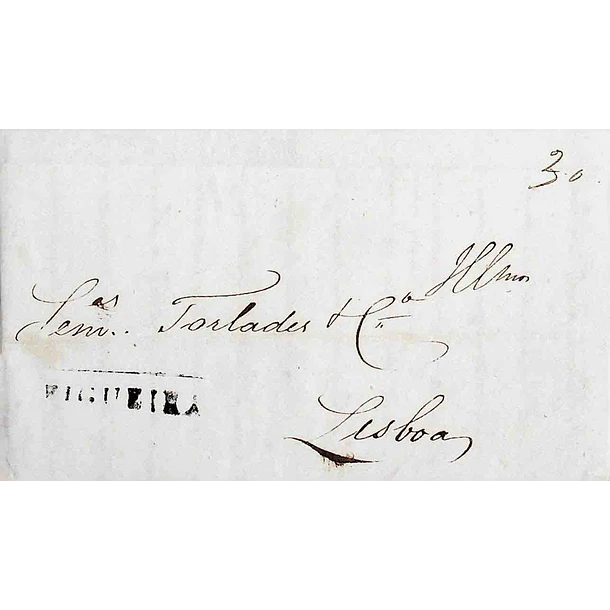 30
Illmos
Senras. Torlades & Ca
FIGUEIRA
Lisboa